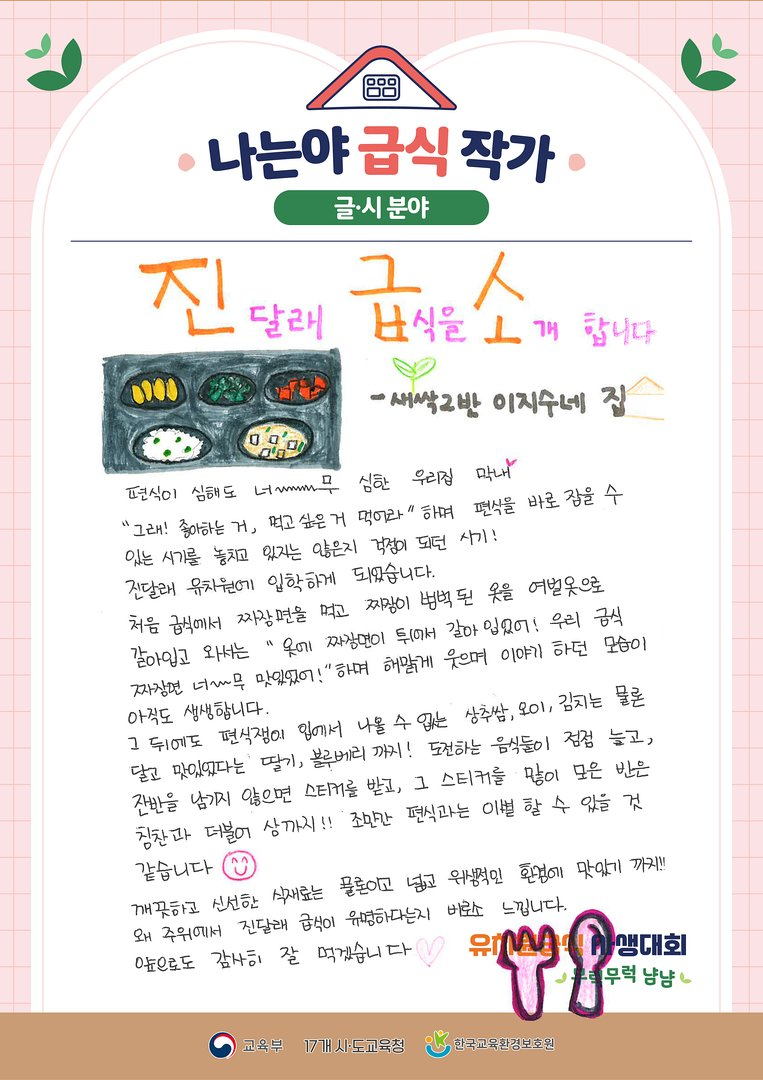 나는야 급식 작가
글·시 분야
진달래 급식을 소개 합니다
-새싹2반 이지수네 집
편식이 심해도 너~~~무 심한 우리집 막내
"그래! 좋아하는 거, 먹고 싶은 거 먹어라" 하며 편식을 바로 잡을 수
있는 시기를 놓치고 있지는 않은지 걱정이 되던 시기!
진달래 유치원에 입학하게 되었습니다.
처음 급식에서 짜장면을 먹고 짜장이 범벅된 옷을 여벌옷으로
갈아입고 와서는 "옷에 짜장면이 튀어서 갈아 입었어! 우리 급식
짜장면 너~~무 맛있었어!" 하며 해맑게 웃으며 이야기 하던 모습이
아직도 생생합니다.
그 뒤에도 편식쟁이 입에서 나올 수 없는 상추쌈, 오이, 김치는 물론
달고 맛있었다는 딸기, 블루베리 까지! 도전하는 음식들이 점점 늘고,
잔반을 남기지 않으면 스티커를 받고, 그 스티커를 많이 모은 반은
칭찬과 더불어 상까지!! 조만간 편식과는 이별 할 수 있을 것
같습니다
깨끗하고 신선한 식재료는 물론이고 넓고 위생적인 환경에 맛있기 까지!!
왜 주위에서 진달래 급식이 유명하다는지 비로소 느낍니다.
앞으로도 감사히 잘 먹겠습니다
유치원급식 사생대회
무럭무럭 냠냠
교육부 17개 시·도교육청 한국교육환경보호원